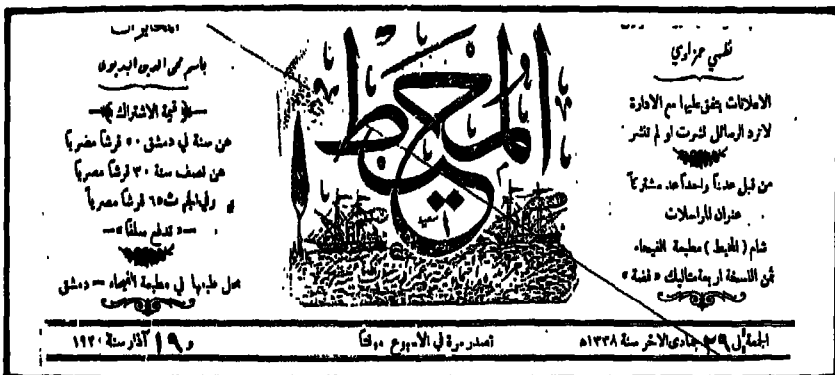 نظمي حمزاوي
الاعلانات يتفق عليها مع الادارة
لا ترد الرسائل نشرت او لم تنشر
من قبل عدداً واحداً عد مشتركاً
عنوان المراسلات
شام ( المحيط ) مطبعة الفيحاء
ثمن النسخة اربعة متاليك « فضة »
المحيط
سعيد
المخابرات
باسم محي الدين البديوي
قيمة الاشتراك
عن سنة في دمشق ٥٠ قرشاً مصرياً
عن نصف سنة ٣٠ قرشاً مصرياً
وفي الجهات ٦٥ قرشاً مصرياً
« تدفع سلفاً »
محل طبعها في مطبعة الفيحاء — دمشق
الجمعة في ٢٩ جمادى الاخر سنة ١٣٣٨ه
تصدر مرة في الاسبوع موقتاً
و ١٩ آذار سنة ١٩٢٠